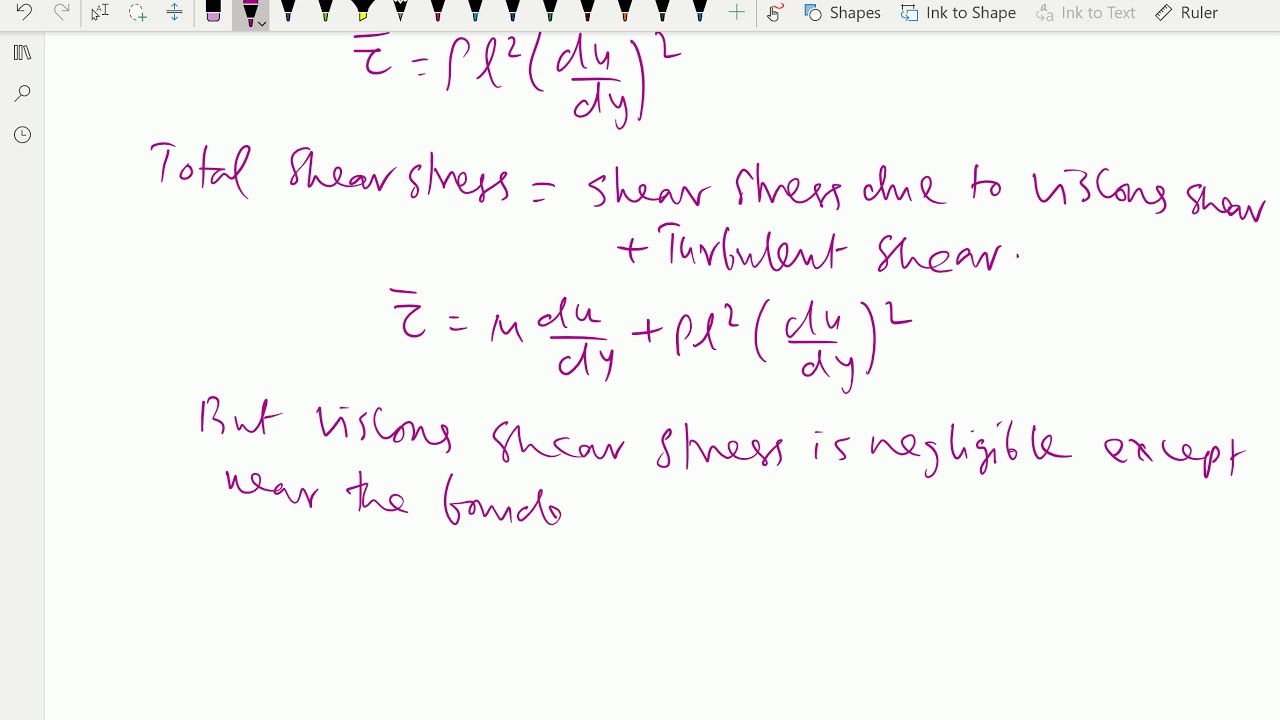 Shapes Ink to Shape Ink to Text Ruler
τ̄ = ρl²(du/dy)²
Total Shear stress = shear stress due to viscous shear
+ Turbulent shear.
τ̄ = μ du/dy + ρl²(du/dy)²
But viscous shear stress is negligible except
near the bounda